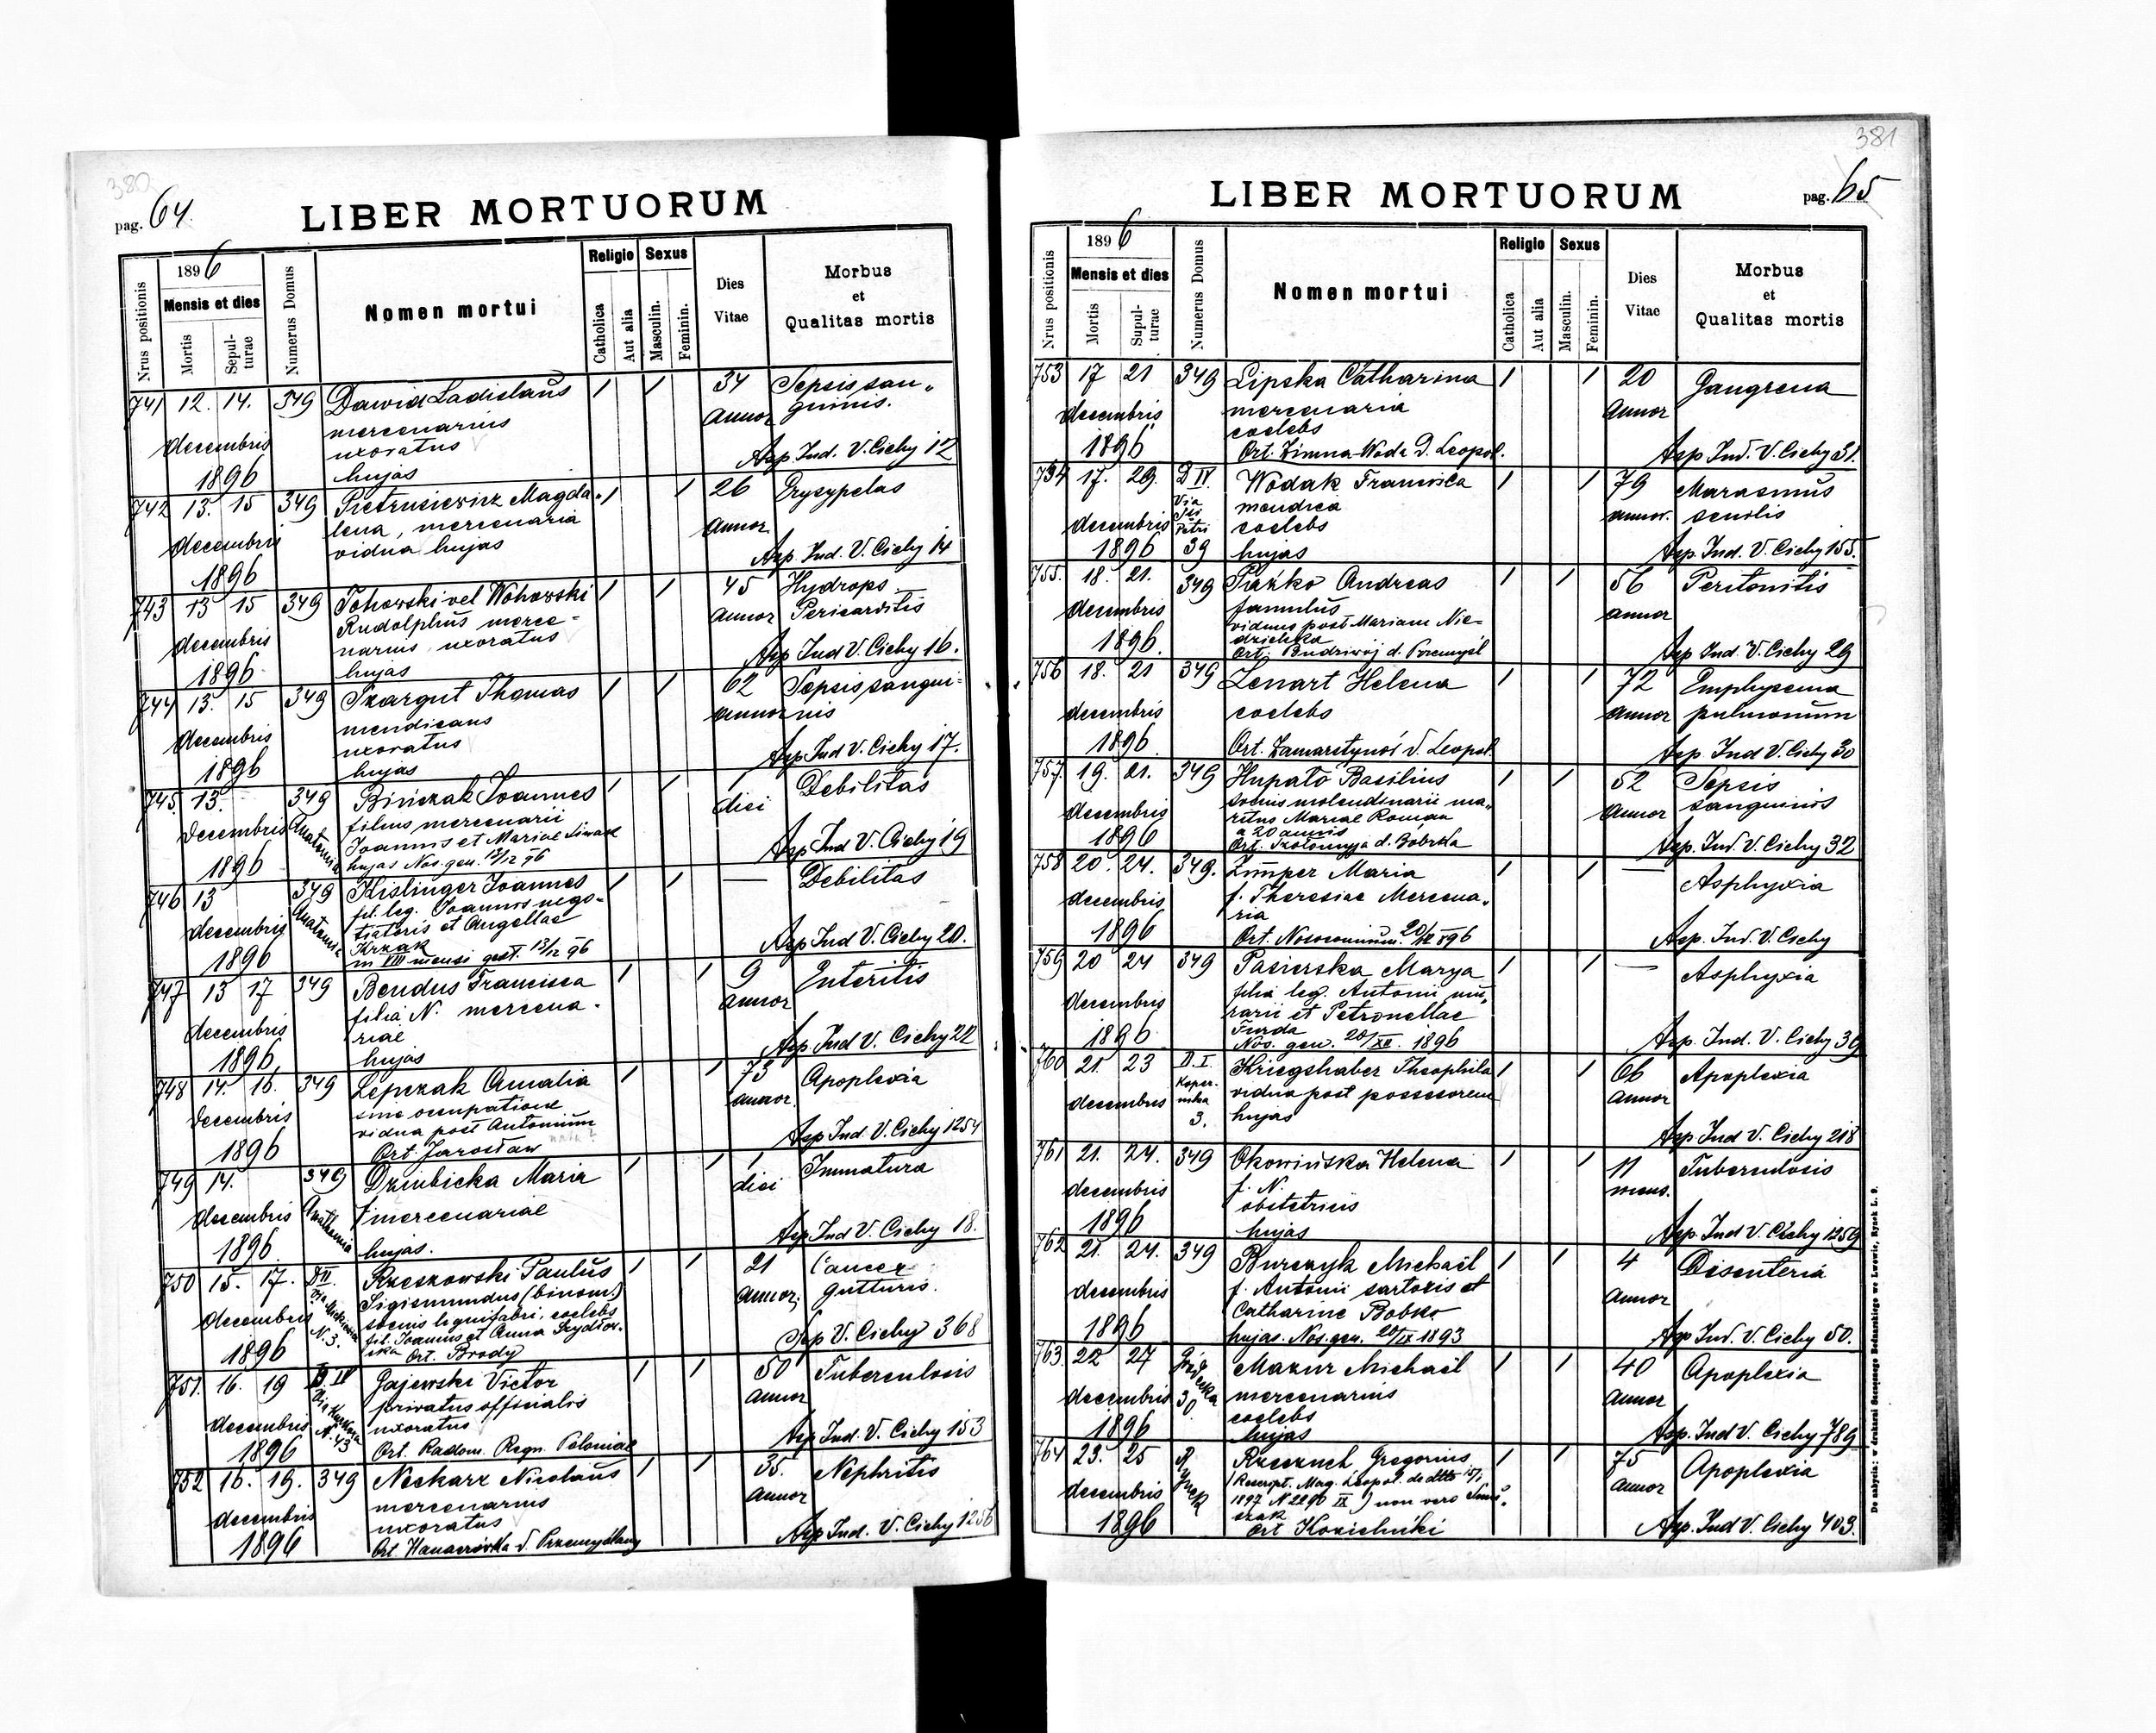 380
pag. 64.
LIBER MORTUORUM
Nrus positionis
1896
Mensis et dies
Mortis
Sepul-
turae
Numerus Domus
Nomen mortui
Religio
Catholica
Aut alia
Sexus
Masculin.
Feminin.
Dies
Vitae
Morbus
et
Qualitas mortis
741 12. 14. 349 Dawid Ladislaus / / 34 Sepsis san-
mercenarius annor guinis.
decembris uxoratus
1896 hujas Asp. Ind. V. Cichy 12
742 13. 15 349 Pietrusiewicz Magda- / / 26 Erysypelas
lena, mercenaria annor
decembris vidua hujas
1896 Asp. Ind. V. Cichy 14
743 13 15 349 Tohowski vel Wohowski / / 45 Hydrops
Rudolphus merce- annor Pericarditis
decembris narius uxoratus
1896 hujas Asp Ind V. Cichy 16.
744 13. 15 349 Skargut Thomas / / 62 Sepsis sangui-
mendicans annor nis
decembris uxoratus
1896 hujas Asp Ind V. Cichy 17.
745. 13. 349 Bińczak Joannes / / 1 Debilitas
decembris Anatomia filius mercenarii diei
Joannis et Mariae
1896 hujas Nos. gen. 13/12 96 Asp Ind V. Cichy 19
746 13 349 Kislinger Joannes / / — Debilitas
fil. leg. Joannis nego-
decembris Anatomia tiatoris et Angellae
Krzak
1896 in VIII mensi gest. 13/12 96 Asp Ind V. Cichy 20.
747 13 17 349 Bendus Francisca / / 9 Enteritis
filia N. mercena- annor
decembris riae
1896 hujas Asp Ind V. Cichy 22
748 14. 16. 349 Lepczak Amalia / / 73 Apoplexia
sine occupatione annor.
decembris vidua post Antonium
1896 Ort Jarosław Asp Ind. V. Cichy 1254
749 14. 349 Dziubicka Maria / / 1 Immatura
decembris Anathomia f mercenariae diei
1896 hujas. Asp Ind V. Cichy 18.
750 15. 17. D II. Rzeszowski Paulus / / 21 Cancer
Via Sigismundus (binom.) annor. gutturis.
decembris N. 3. socius lignifabri, coelebs
fil. Joannis et Anna Szydłow-
1896 ska Ort. Brody Asp V. Cichy 368
751. 16. 19 D. IV Gajewski Victor / / 50 Tuberculosis
Via Kurkowa privatus officialis annor
decembris N. 43 uxoratus
1896 Ort. Radom. Regn. Poloniae Asp Ind. V. Cichy 153
752 16. 19. 349 Neckarz Nicolaus / / 35. Nephritis
mercenarius annor
decembris uxoratus
1896 Ort. Hanaczówka d. Przemyślany Asp Ind. V. Cichy 1256
381
pag. 65
LIBER MORTUORUM
Nrus positionis
1896
Mensis et dies
Mortis
Supul-
turae
Numerus Domus
Nomen mortui
Religio
Catholica
Aut alia
Sexus
Masculin.
Feminin.
Dies
Vitae
Morbus
et
Qualitas mortis
753 17 21 349 Lipska Catharina / / 20 Gangrena
decembris mercenaria annor
coelebs
1896 Ort. Zimna-Woda d. Leopol. Asp Ind. V. Cichy 31.
754 17. 29. D IV. Wodak Francisca / / 79 Marasmus
Via mendica annor. senilis
decembris Sti Petri coelebs
1896 39 hujas Asp. Ind. V. Cichy 155.
755. 18. 21. 349 Piażko Andreas / / 56 Peritonitis
decembris famulus annor
viduus post Mariam Nie-
1896. dzielska
Ort. Budziwoj d. Przemyśl Asp Ind. V. Cichy 29
756 18. 21 349 Lenart Helena / / 72 Emphysema
decembris coelebs annor pulmonum
1896. Ort. Zamarstynów d. Leopol. Asp Ind V. Cichy 30
757. 19. 21. 349 Hupało Basilius / / 52 Sepsis
decembris socius molendinarii ma- annor sanguinis
ritus Mariae Roman
1896 a 20 annis
Ort. Szołomyja d. Bóbrka Asp. Ind. V. Cichy 32
758 20. 24. 349. Zimper Maria / / — Asphyxia
decembris f. Theresiae Mercena-
ria
1896 Ort. Nosocomium. 20/12 896 Asp. Ind. V. Cichy
759 20 24 349 Pasierska Marya / / — Asphyxia
filia leg. Antonii mu-
decembris rarii et Petronellae
Furda
1896 Nos. gen. 20/XII. 1896 Asp. Ind. V. Cichy 36
760 21. 23 D. I. Kriegshaber Theophila / / 66 Apoplexia
decembris Koper- vidua post possesorem annor
nika 3. hujas
Asp Ind V. Cichy 218
761 21. 24. 349 Okowińska Helena / / 11 Tuberculosis
decembris f. N. mens.
obstetricis
1896 hujas Asp Ind V. Cichy 1259
762 21. 24. 349 Burczyk Michael / / 4 Disenteria
decembris f. Antonii sartoris et annor
Catharine Bobko
1896 hujas. Nos. gen. 20/IX 1893 Asp Ind. V. Cichy 50.
763. 22 27 Gródecka Mazur Michael / / 40 Apoplexia
decembris 30. mercenarius annor
coelebs
1896 hujas Asp. Ind V. Cichy 789
764 23. 25 Rynek Rzeznch Gregorius / / 75 Apoplexia
decembris (Rescript. Mag. Leopol. de dtto annor
1897 N 2290 IX) non vero
1896 Ort Kozielniki Asp. Ind V. Cichy 403.
Do nabycia: w drukarni Szczęsnego Bednarskiego we Lwowie, Rynek L. 9.